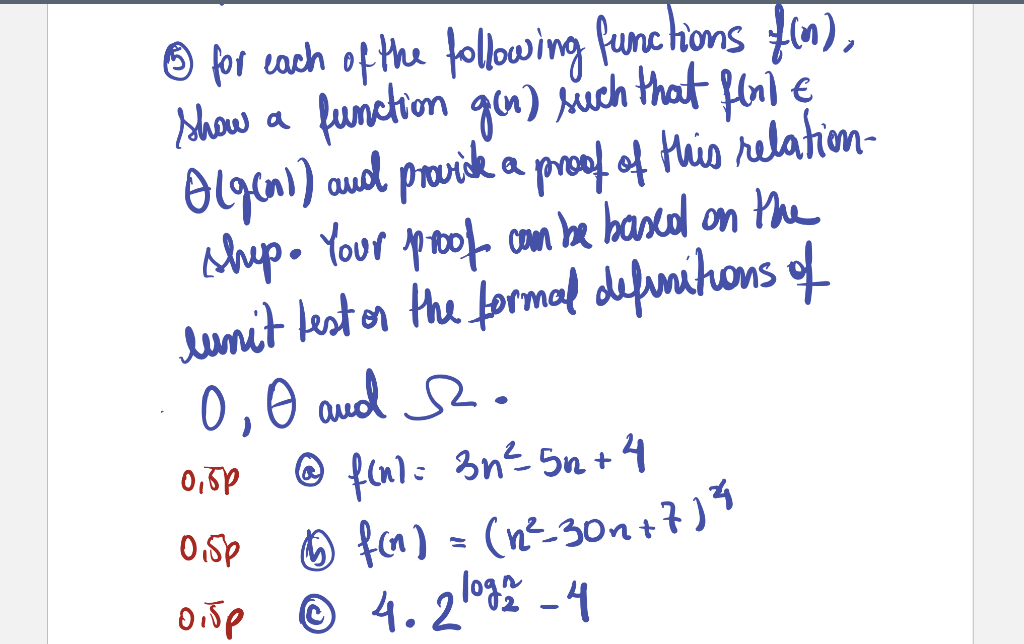 ⑤ for each of the following functions f(n),
show a function g(n) such that f(n) ∈
θ(g(n)) and provide a proof of this relation-
ship. Your proof can be based on the
limit test or the formal definitions of
O, θ and Ω.
0,5p ⓐ f(n) = 3n² - 5n + 4
0,5p ⓑ f(n) = (n² - 30n + 7)⁴
0,5p ⓒ 4 · 2^{log₂ n} - 4